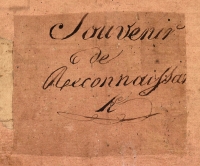 Souvenir
de
Reconnaissan